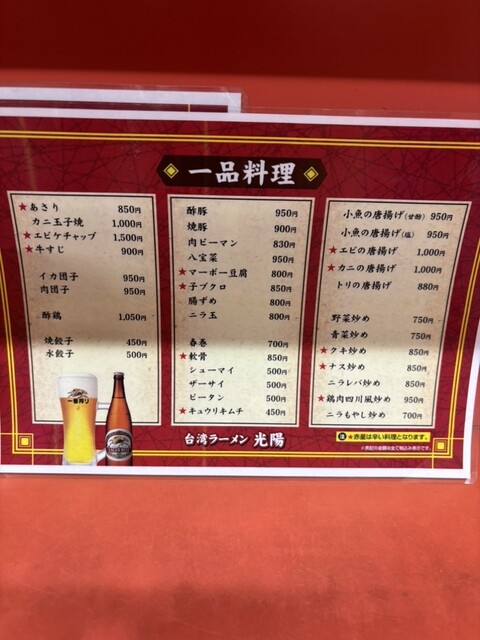 一品料理
★あさり 850円
カニ玉子焼 1,000円
★エビケチャップ 1,500円
★牛すじ 900円
イカ団子 950円
肉団子 950円
酢鶏 1,050円
焼餃子 450円
水餃子 500円
酢豚 950円
焼豚 900円
肉ピーマン 830円
八宝菜 950円
★マーボー豆腐 800円
★子ブクロ 850円
腸ずめ 800円
ニラ玉 800円
春巻 700円
★軟骨 850円
シューマイ 500円
ザーサイ 500円
ピータン 500円
★キュウリキムチ 450円
小魚の唐揚げ(甘酢) 950円
小魚の唐揚げ(塩) 950円
★エビの唐揚げ 1,000円
★カニの唐揚げ 1,000円
トリの唐揚げ 880円
野菜炒め 750円
青菜炒め 750円
★クキ炒め 850円
★ナス炒め 850円
ニラレバ炒め 850円
★鶏肉四川風炒め 950円
ニラもやし炒め 700円
一番搾り
台湾ラーメン 光陽
注 ★赤星は辛い料理となります。
※表記の金額は全て税込み表示です。